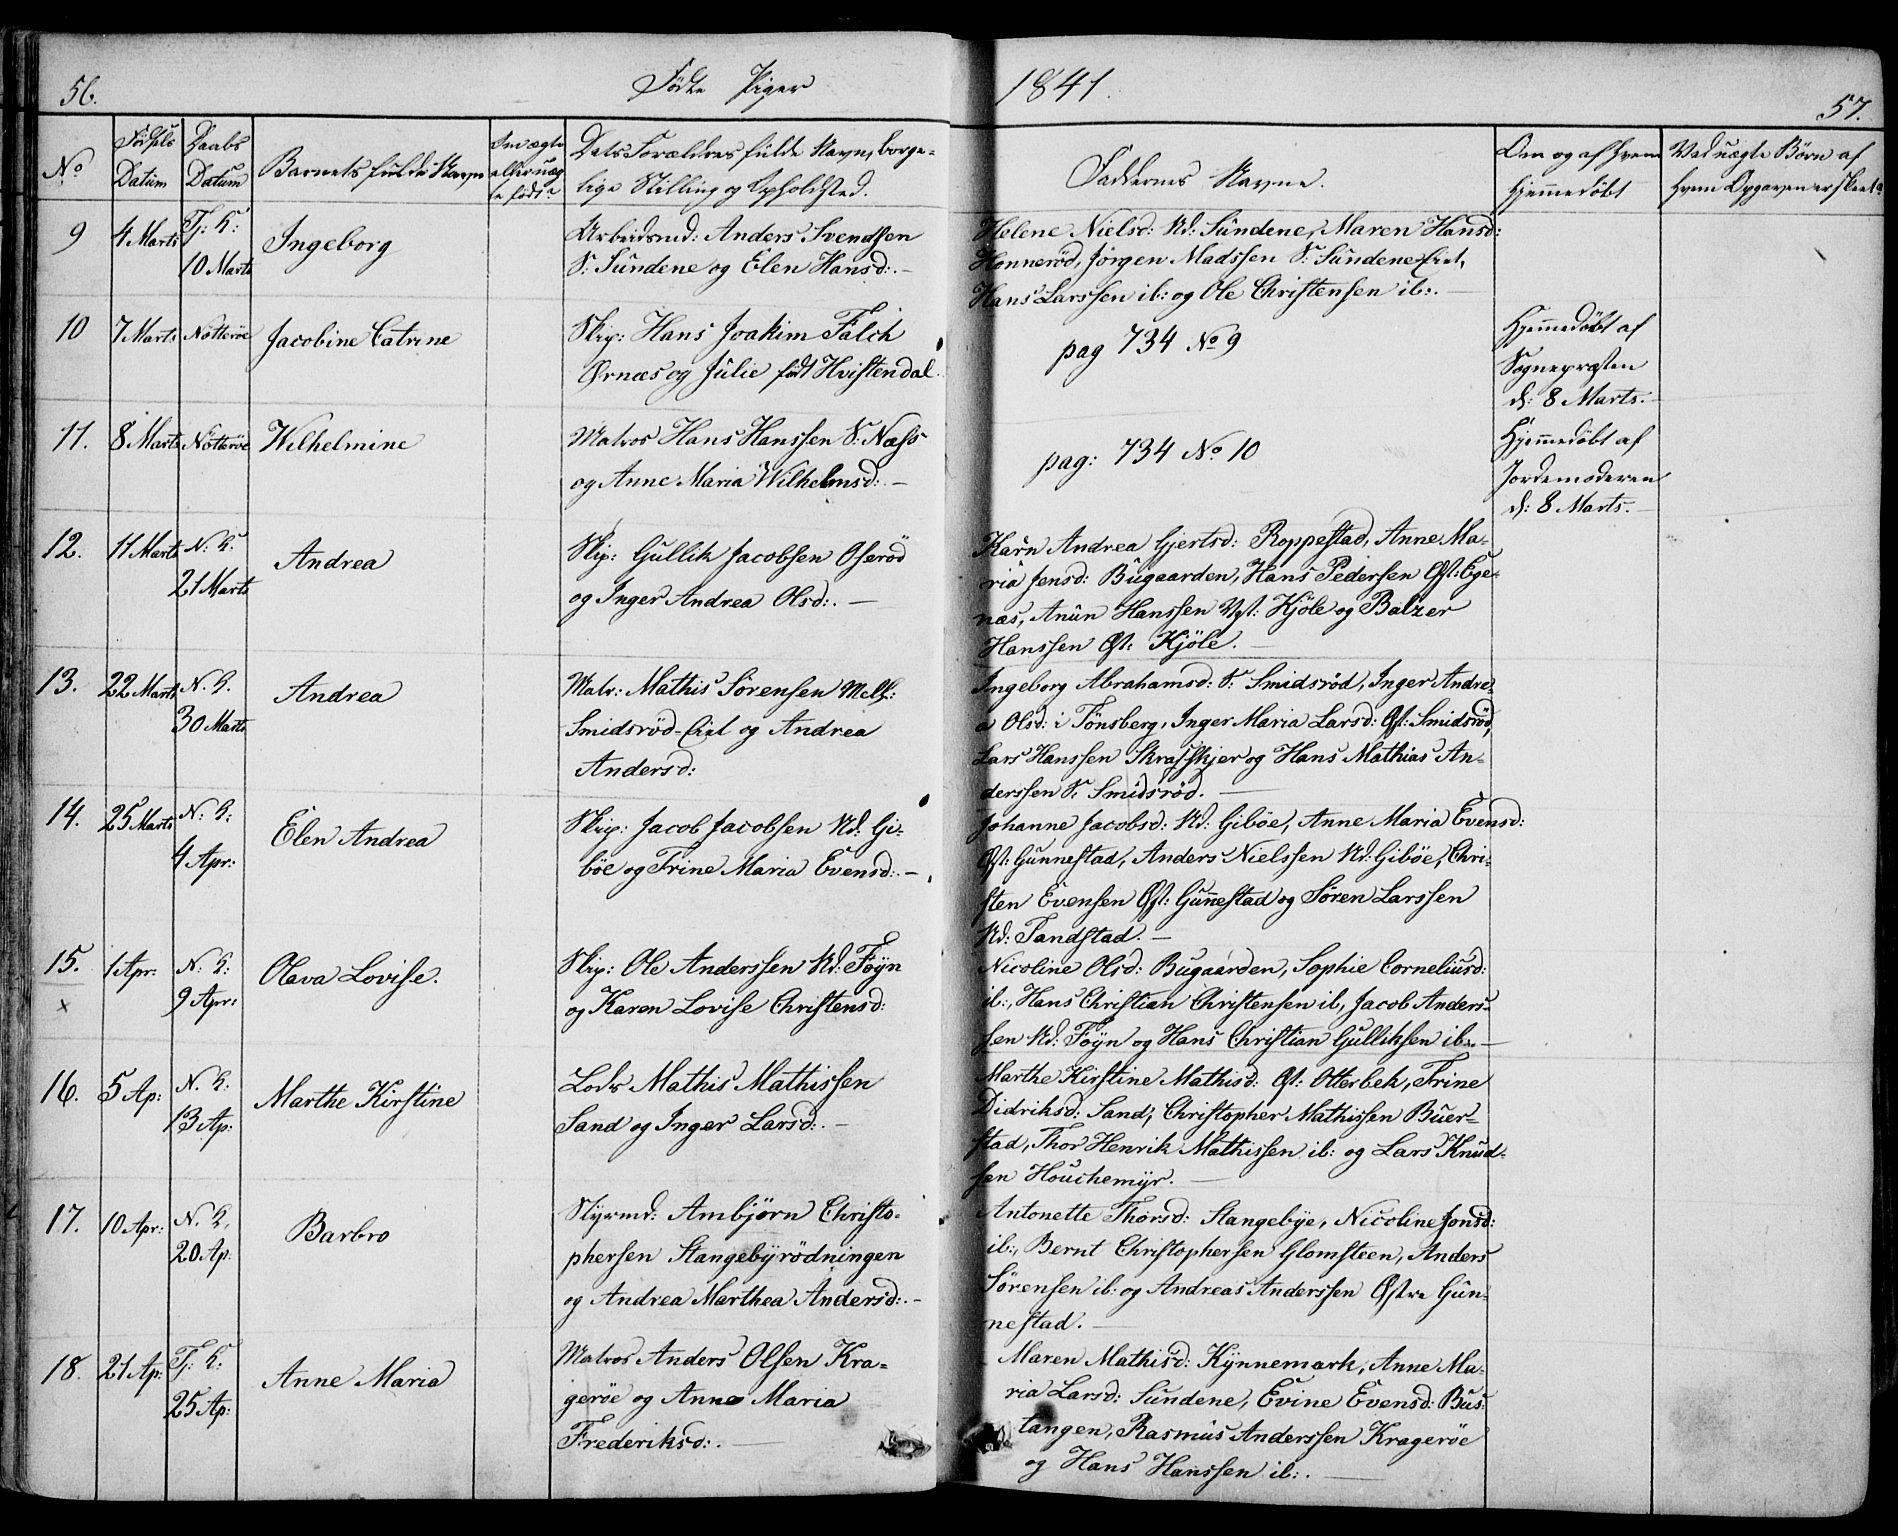 56.
Födte Piger
1841.
57.
No
Födsels Datum
Daabs Datum
Barnets fulde Navn
Om ægte eller uægte födt
Dets Forældres fulde Navn, borge-
lige Stilling og Opholdsted.
Faddernes Navne.
Om og af hvem
hjemmedöbt
Ved uægte Börn af
hvem Opgaven er skeet
9
4 Marts
Tj: K:
10 Marts
Ingeborg
Arbeidsmd: Anders Svendsen
S: Sundene og Elen Hansd:. –
Helene Nielsd: Nd: Sundene, Maren Hansd:
Honneröd, Jörgen Madssen S: Sundene-Eiet,
Hans Larssen ib: og Ole Christensen ib:. –
10
7 Marts
Nötteröe
Jacobine Catrine
Skip: Hans Joakim Falch
Örnæs og Julie födt Hvistendal.
pag 734 No 9
Hjemmedöbt af
Sognepræsten
d: 8 Marts. –
11.
8 Marts
Nötteröe
Wilhelmine
Matros Hans Hanssen S: Næss
og Anne Maria Wilhelmsd:. –
pag: 734 No 10
Hjemmedöbt af
Jordemoderen
d: 8 Marts. –
12.
11 Marts
N: K:
21 Marts
Andrea
Skip: Gullik Jacobsen Oseröd
og Inger Andrea Olsd:. –
Karn Andrea Gjertsd: Roppestad, Anne Ma-
ria Jensd: Bugaarden, Hans Pedersen Öst: Ege-
næs, Anun Hanssen Vest: Kjöle og Balzer
Hanssen Öst: Kjöle. –
13.
22 Marts
N. K.
30 Marts
Andrea
Matr: Mathis Sörensen Mell:
Smidsröd-Eiet og Andrea
Andersd:
Ingeborg Abrahamsd: S: Smidsröd, Inger Andre-
a Olsd: i Tönsberg, Inger Maria Larsd: Öst: Smidsröd,
Lars Hanssen Skrafskjer og Hans Mathias An-
derssen S: Smidsröd. –
14.
25 Marts
N: K:
4 Apr:
Elen Andrea
Skip: Jacob Jacobsen Nd: Gi-
böe og Trine Maria Evensd:. –
Johanne Jacobsd: Nd: Giböe, Anne Maria Evensd:
Öst: Gunnestad, Anders Nielssen Nd: Giböe, Chri-
sten Evensen Öst: Gunnestad og Sören Larssen
Nd: Tandstad. –
15.
x
1 Apr:
N: K:
9 Apr:
Olava Lovise.
Skip: Ole Anderssen Nd: Föyn
og Karen Lovise Christensd:
Nicoline Olsd: Bugaarden, Sophie Corneliusd:
ib:, Hans Christian Christensen ib, Jacob Anders-
sen Nd: Föyn og Hans Christian Gulliksen ib:. –
16.
5 Ap:
N. K:
13 Ap:
Marthe Kirstine
Lods Mathis Mathissen
Sand og Inger Larsd:. –
Marthe Kirstine Mathisd: Öst: Otterbek, Trine
Didriksd: Sand, Christopher Mathissen Buer-
stad, Thor Henrik Mathissen ib: og Lars Knud-
sen Houchemyr. –
17.
10 Apr:
N. K.
20 Ap.
Barbro
Styrmd: Ambjörn Christo-
phersen Stangebyrödningen
og Andrea Marthea Andersd:. –
Antonette Thorsd: Stangebye, Nicoline Jonsd:
ib:, Bernt Christophersen Glomsteen, Anders
Sörensen ib: og Andreas Anderssen Östre Gun-
nestad. –
18.
21 Ap:
Tj: K:
25 Ap:
Anne Maria
Matros Anders Olsen Kra-
geröe og Anne Maria
Frederiksd:. –
Maren Mathisd: Kynnemark, Anne Ma-
ria Larsd: Sundene, Evine Evensd: Bus-
tangen, Rasmus Anderssen Krageröe
og Hans Hanssen ib:. –